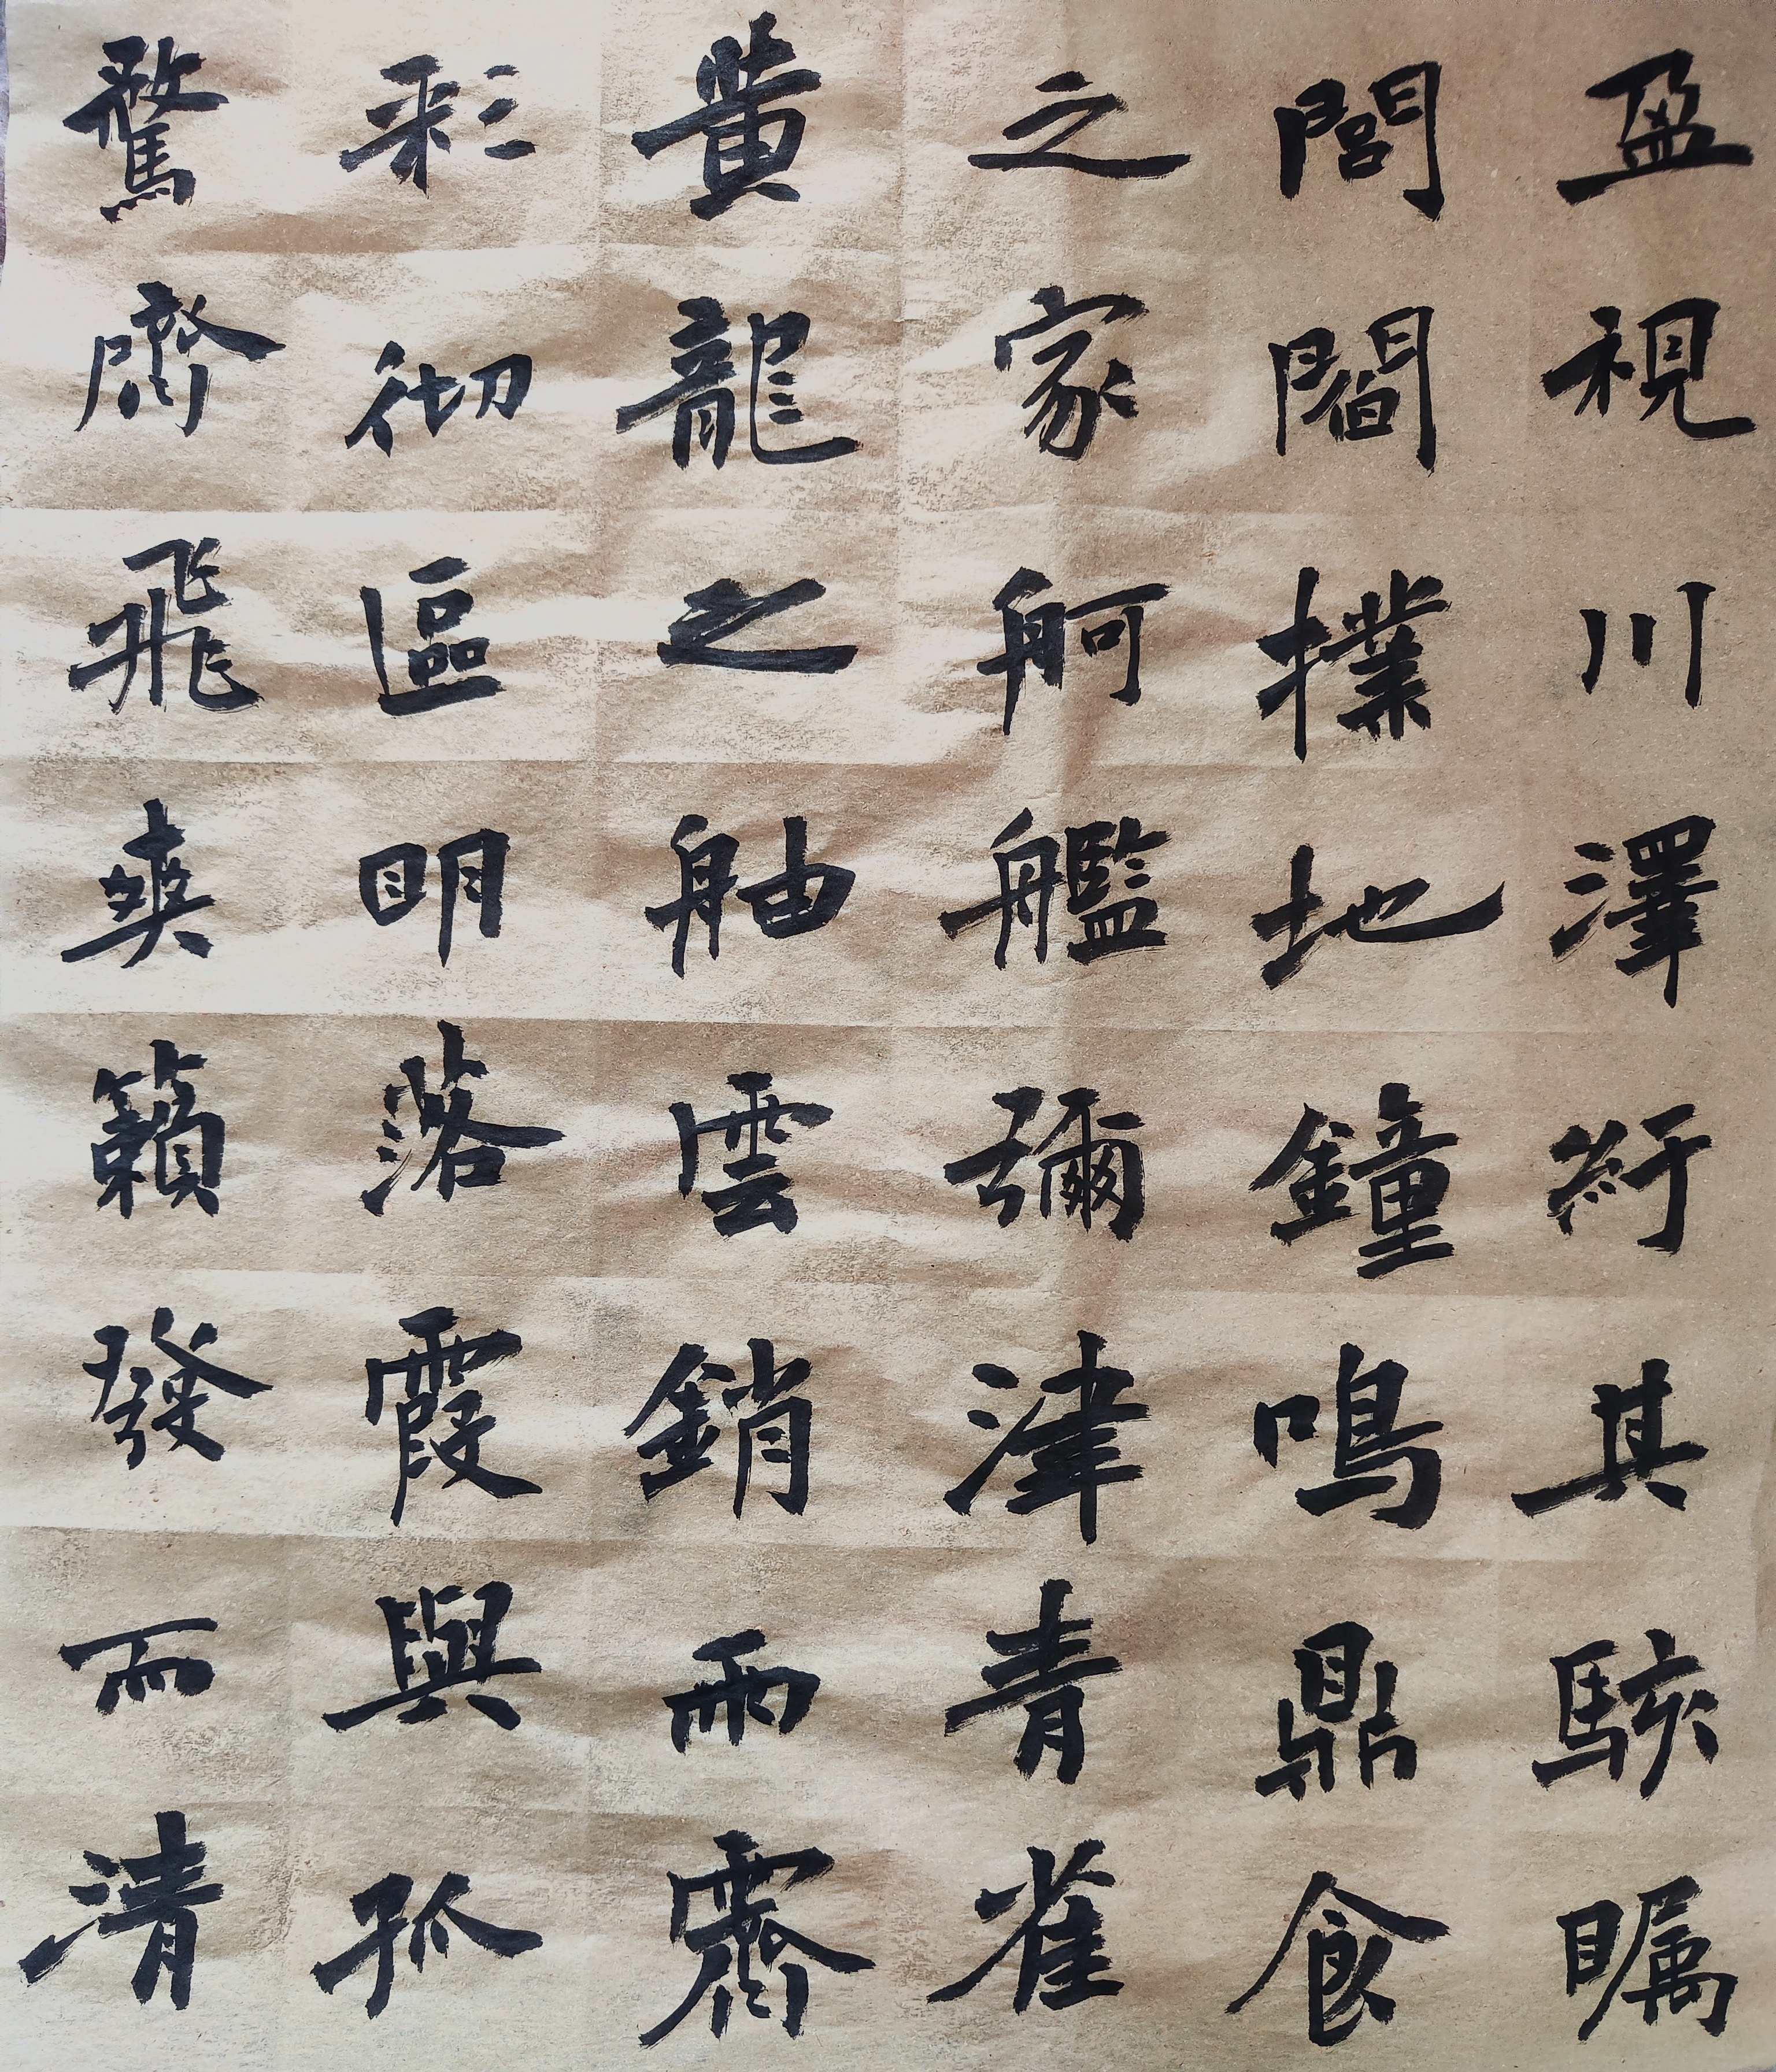 盈視川澤紆其駭矚
閭閻撲地鐘鳴鼎食
之家舸艦彌津青雀
黄龍之舳雲銷雨霽
彩彻區明落霞與孤
騖齊飛爽籟發而清